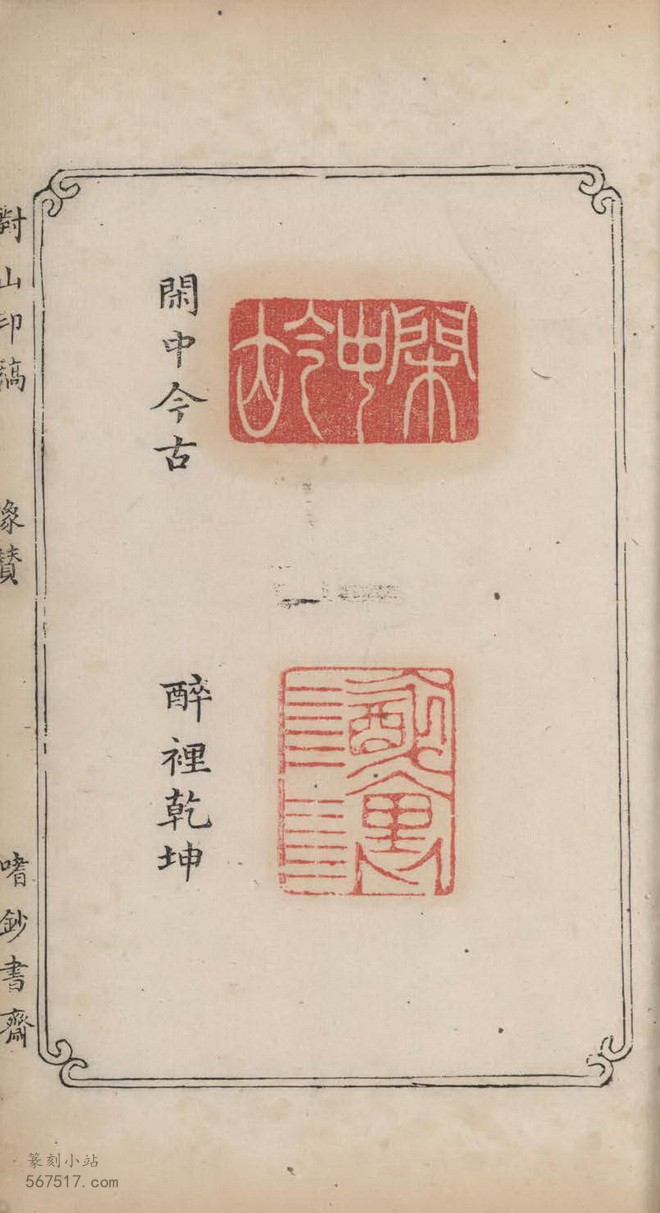 閑中今古
閑中今古
醉裏
醉裡乾坤
對山印稿 像贊 嗜鈔書齋
篆刻小站
567517.com